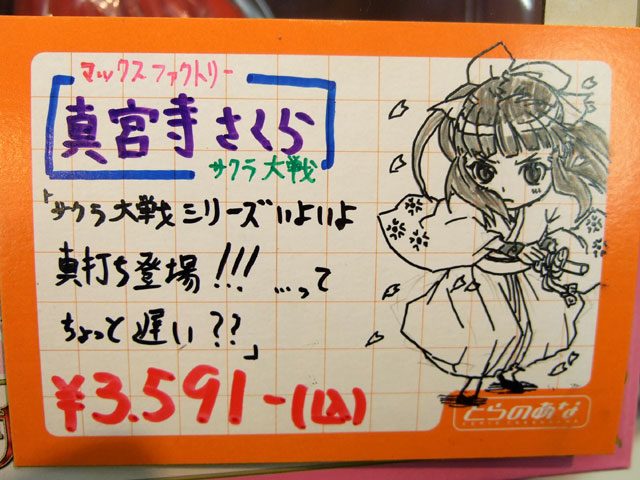 マックスファクトリー
真宮寺さくら
サクラ大戦
「サクラ大戦シリーズいよいよ
真打ち登場!!! …って
ちょっと遅い??」
¥3.591-(込)
とらのあな